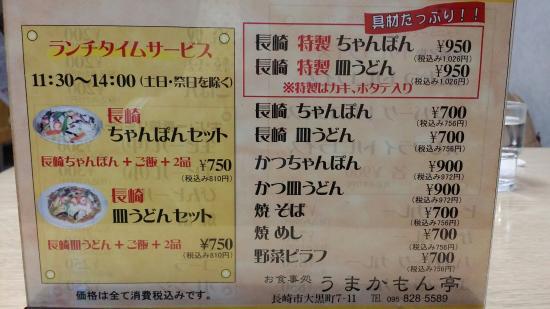 ランチタイムサービス
11:30～14:00（土日・祭日を除く）
長崎
ちゃんぽんセット
長崎ちゃんぽん＋ご飯＋2品 ¥750
（税込み810円）
長崎
皿うどんセット
長崎皿うどん＋ご飯＋2品 ¥750
（税込み810円）
価格は全て消費税込みです。
具材たっぷり！！
長崎 特製 ちゃんぽん ¥950
（税込み1,026円）
長崎 特製 皿うどん ¥950
（税込み1,026円）
※特製はカキ、ホタテ入り
長崎 ちゃんぽん ¥700
（税込み756円）
長崎 皿うどん ¥700
（税込み756円）
かつちゃんぽん ¥900
（税込み972円）
かつ皿うどん ¥900
（税込み972円）
焼そば ¥700
（税込み756円）
焼めし ¥700
（税込み756円）
野菜ピラフ ¥700
（税込み756円）
お食事処 うまかもん亭
長崎市大黒町7-11 TEL 095-828-5589